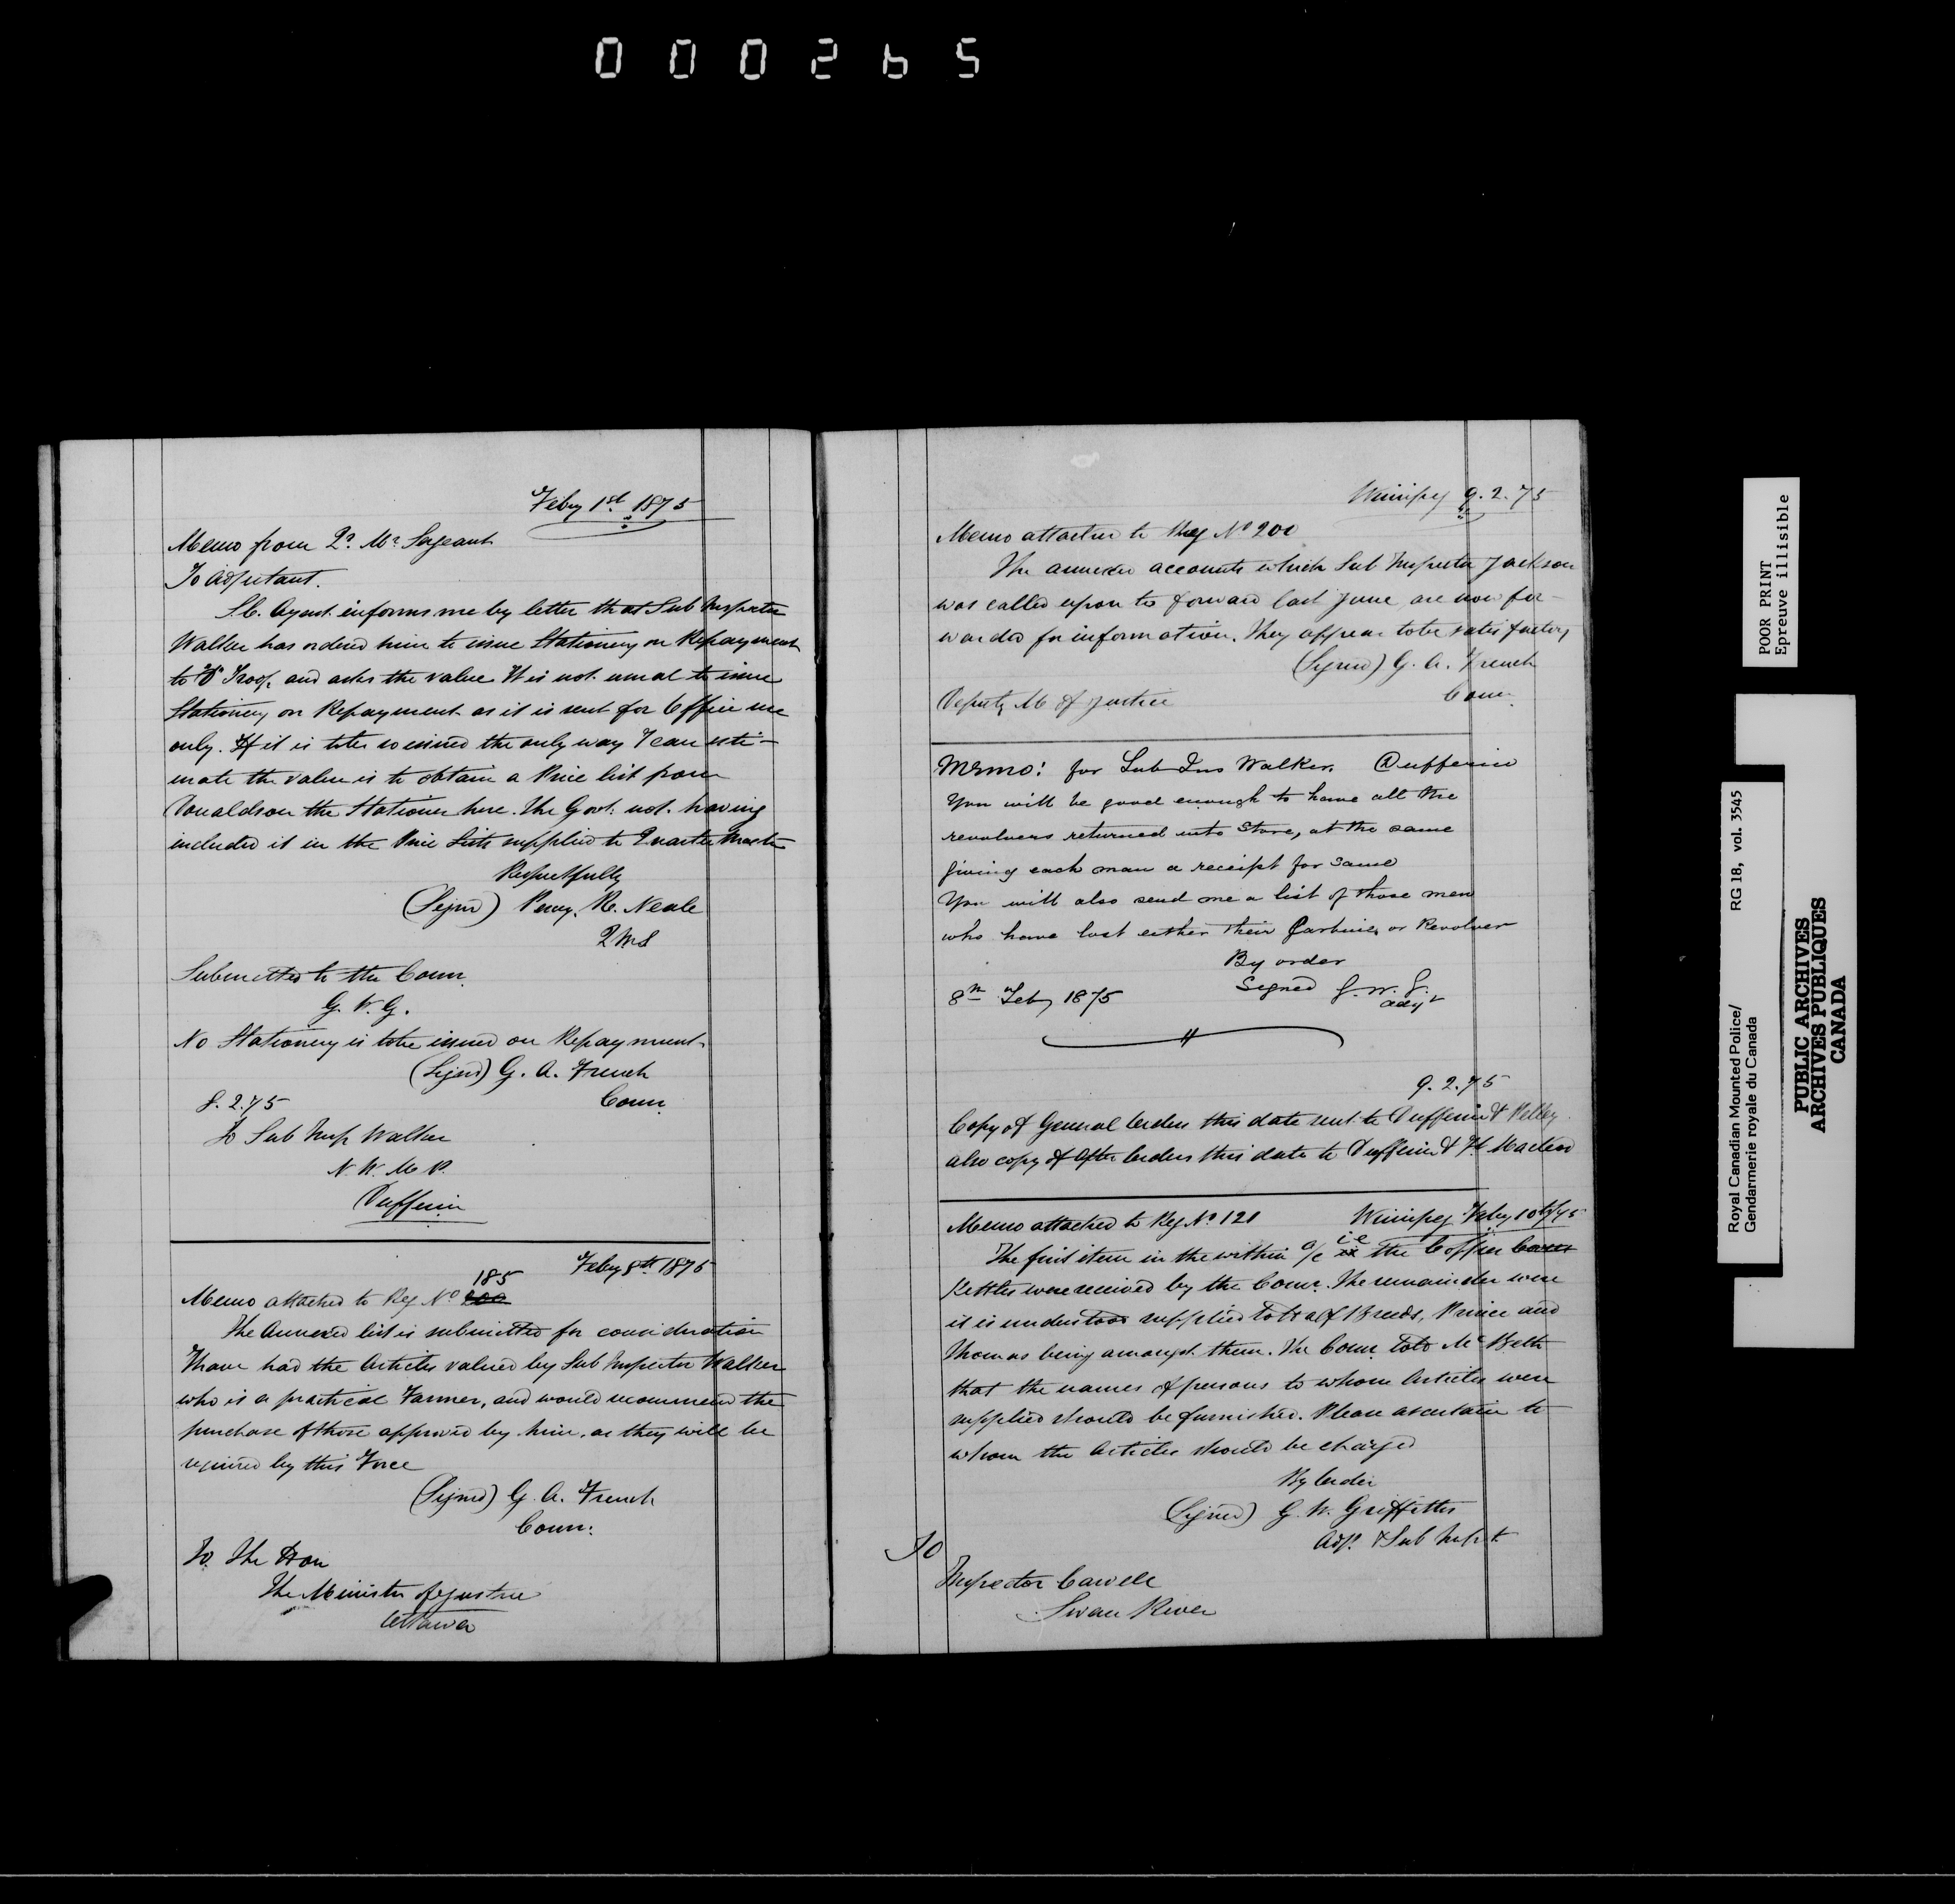 000265
Feby 1st 1875
Memo from Qr. Mr. Sergeant
To Adjutant.
S.C. Agent informs me by letter that Sub Inspector
Walker has ordered him to issue Stationery on Repayment
to "D" Troop and asks the value. It is not usual to issue
Stationery on Repayment as it is sent for Office use
only. If it is to be so issued the only way I can esti-
mate the value is to obtain a Price list from
Donaldson the Stationer here. The Govt. not having
included it in the Price Lists supplied to Quarter Master
Respectfully
(Signd) Percy. R. Neale
QMS
Submitted to the Comr.
G. W. G.
No Stationery is to be issued on Repayment.
(Signd) G. A. French
8. 2. 75 Comr.
To Sub Insp Walker
N. W. M. P.
Dufferin
Feby 8th 1875
185
Memo attached to Reg No 200
The Annexed list is submitted for consideration
I have had the Articles valued by Sub Inspector Walker
who is a practical Farmer, and would recommend the
purchase of those approved by him, as they will be
required by this Force
(Signed) G. A. French
Comr.
To. The Hon
The Minister of Justice
Ottawa
Winnipeg 9. 2. 75
Memo attached to Reg No 200
The annexed accounts which Sub Inspector Jackson
was called upon to forward last June are now for-
warded for information. They appear to be satisfactory
(Signed) G. A. French
Deputy M of Justice Comr.
Memo: for Sub Ins Walker. Dufferin
You will be good enough to have all the
revolvers returned into Store, at the same
giving each man a receipt for same
You will also send me a list of those men
who have lost either their Carbines or Revolver
By order
8th Feby 1875 Signed G. W. G.
Adjt
9. 2. 75
Copy of General Orders this date sent to Dufferin & Pelly.
also copy of After Orders this date to Dufferin & Ft Macleod
Memo attached to Reg No 121 Winnipeg Feby 10th/75
The first item in the within a/c ie the Copper
Kettles were received by the Comr. The remainder were
it is understood supplied to Half Breeds, Prince and
Thomas being amongst them. The Comr. told McBeth
that the names of persons to whom Articles were
supplied should be furnished. Please ascertain to
whom the Articles should be charged
By Order
(Signed) G. W. Griffiths
Adjt. & Sub Inspt.
To
Inspector Carvell
Swan River
POOR PRINT
Epreuve illisible
Royal Canadian Mounted Police/ RG 18, vol. 3545
Gendarmerie royale du Canada
PUBLIC ARCHIVES
ARCHIVES PUBLIQUES
CANADA